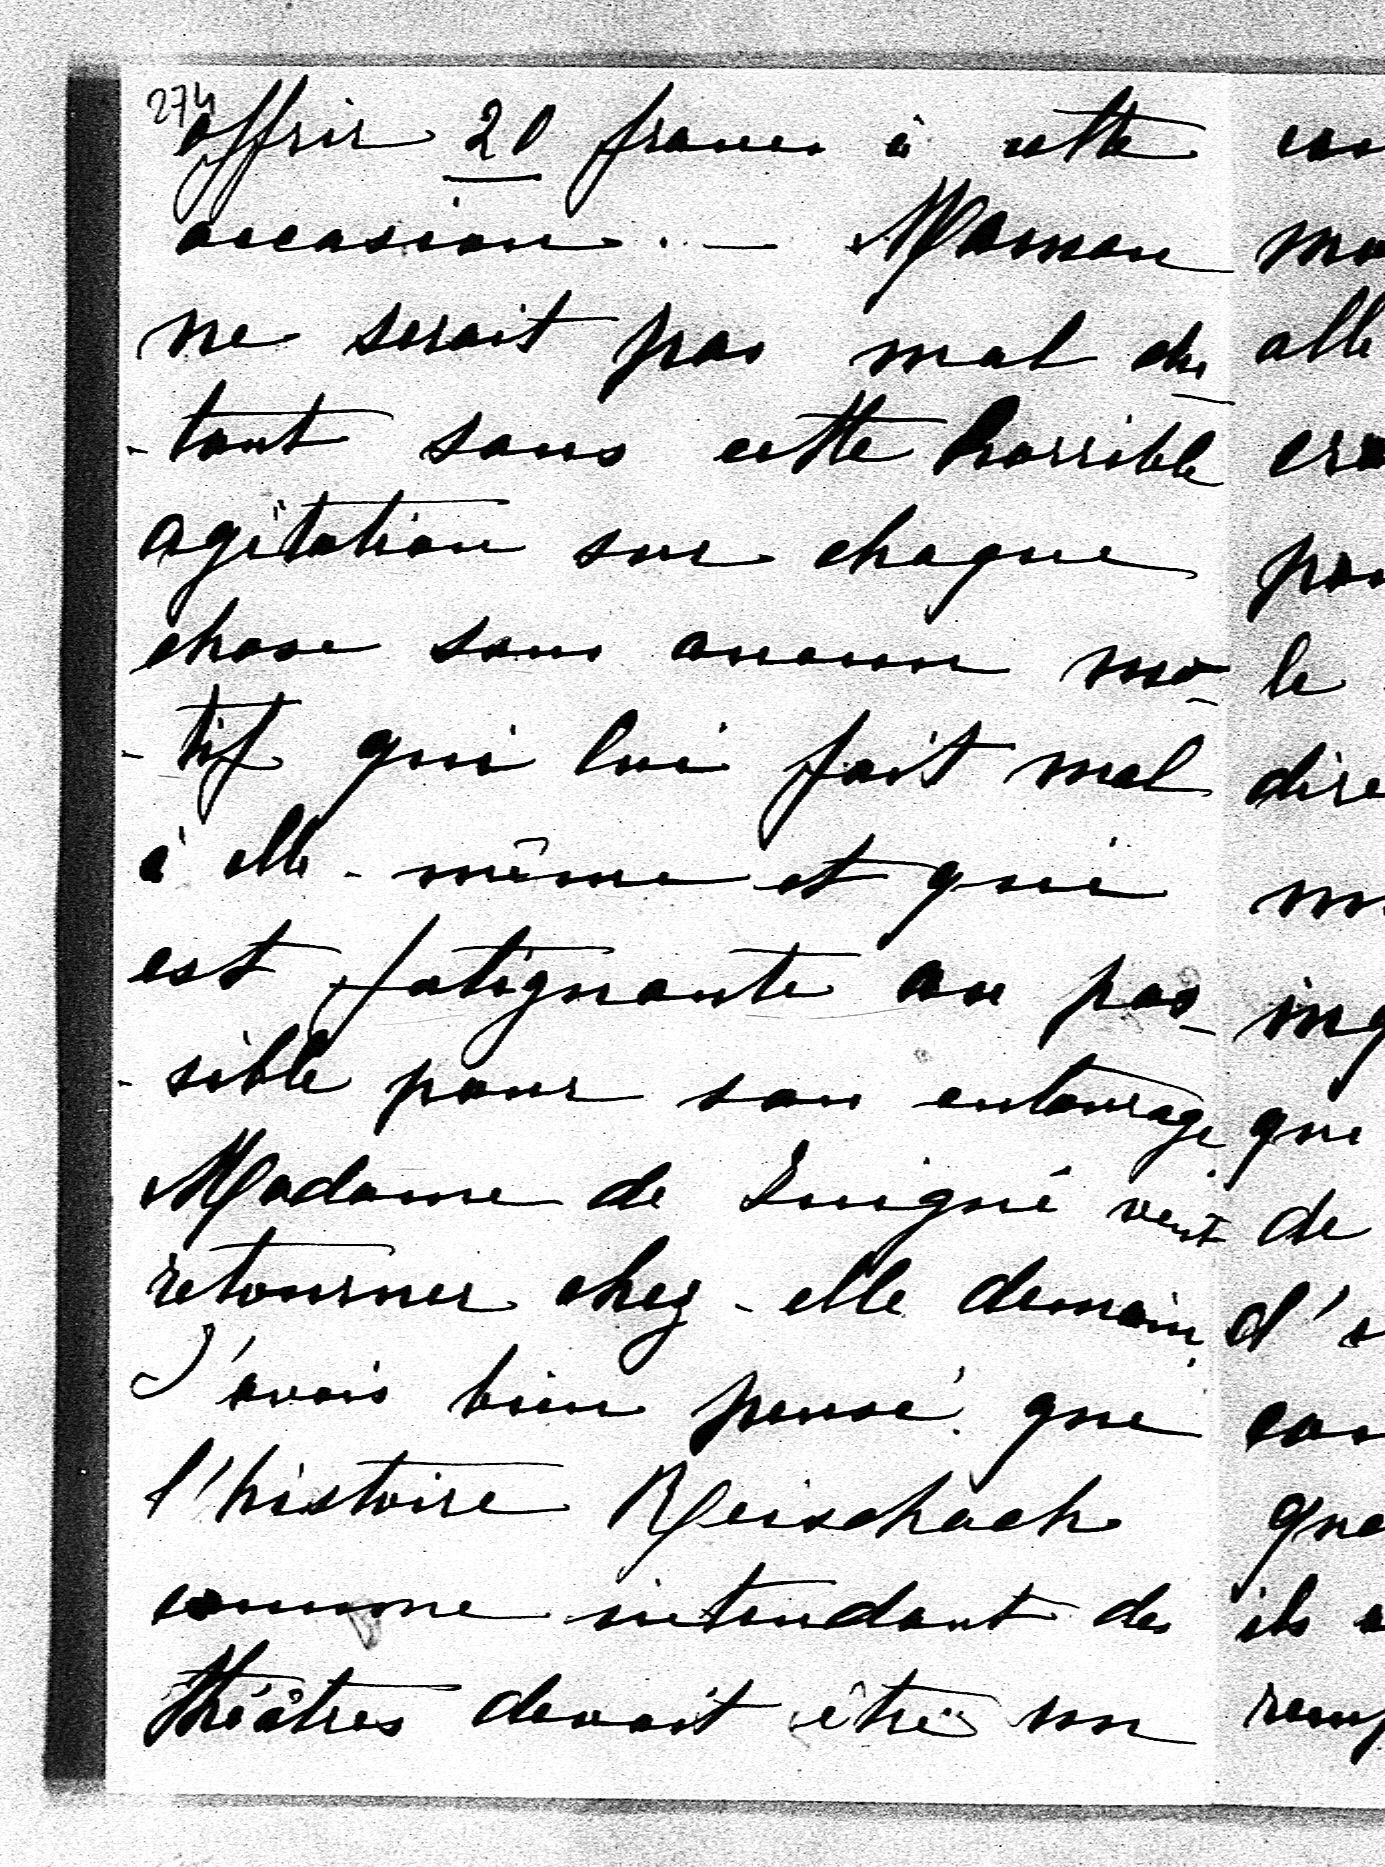 274
offrir 20 francs à cette
occasion. — Maman
ne serait pas mal du
-tout sans cette horrible
agitation sur chaque
chose sans aucun mo-
-tif qui lui fait mal
à elle-même et qui
est fatignante au pos-
-sible pour son entourage.
Madame de Zuigné veut
retourner chez-elle demain.
J'avais bien pensé que
l'histoire Reischach
comme intendant des
théâtres devait être un
mo
alle
le
dire
inq
que
de
que
ils
remp